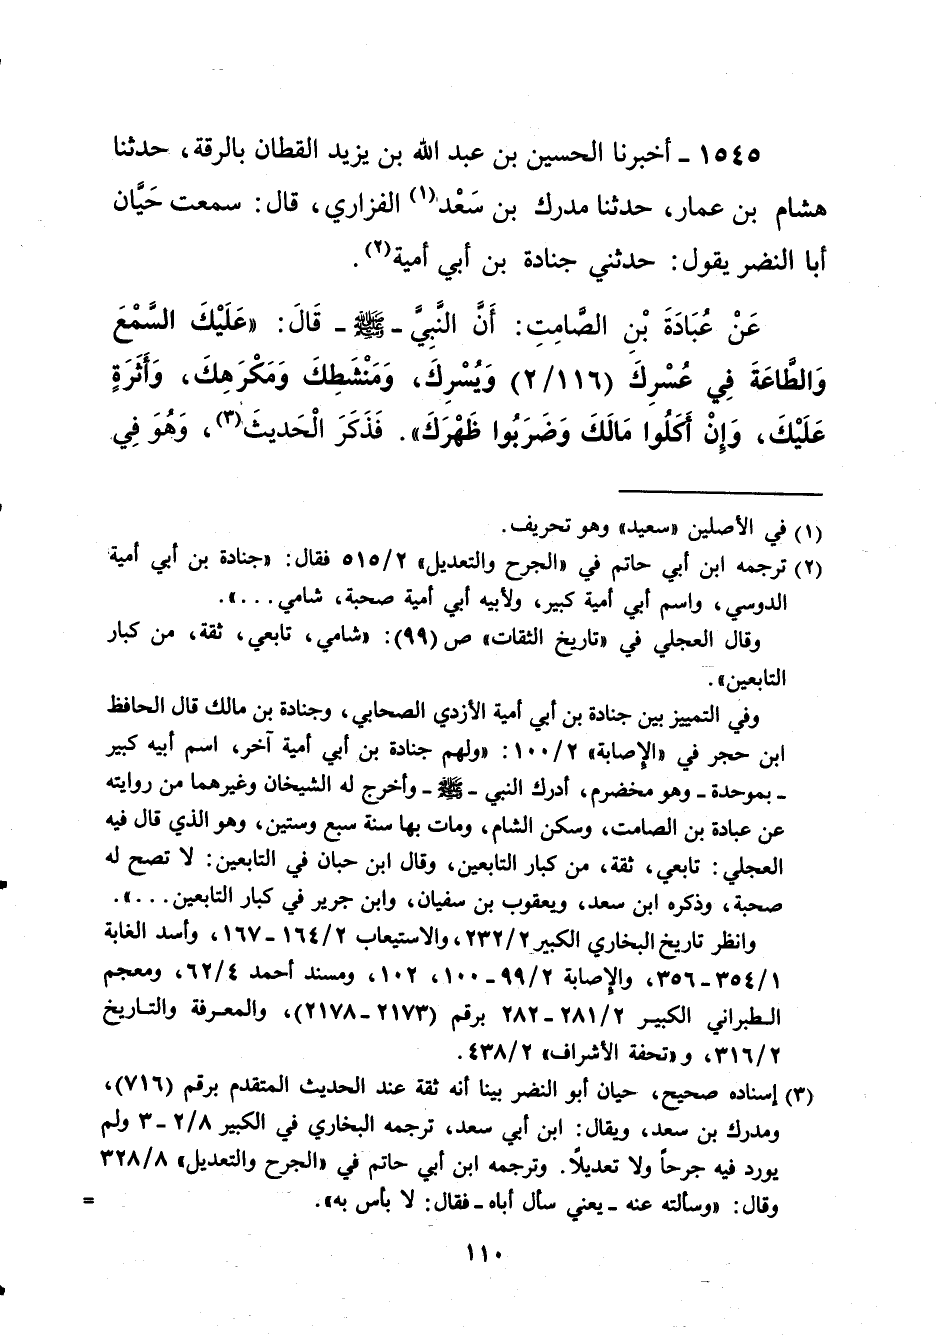 ١٥٤٥ - أخبرنا الحسين بن عبد الله بن يزيد القطان بالرقة، حدثنا
هشام بن عمار، حدثنا مدرك بن سَعْد(١) الفزاري، قال: سمعت حَيَّان
أبا النضر يقول: حدثني جنادة بن أبي أمية(٢).
عَنْ عُبَادَةَ بْنِ الصَّامِتِ: أَنَّ النَّبِيَّ - ﷺ - قَالَ: «عَلَيْكَ السَّمْعَ
وَالطَّاعَةَ فِي عُسْرِكَ (٢/١١٦) وَيُسْرِكَ، وَمَنْشَطِكَ وَمَكْرَهِكَ، وَأَثَرَةٍ
عَلَيْكَ، وَإِنْ أَكَلُوا مَالَكَ وَضَرَبُوا ظَهْرَكَ». فَذَكَرَ الْحَدِيثَ(٣)، وَهُوَ فِي
(١) في الأصلين «سعيد» وهو تحريف.
(٢) ترجمه ابن أبي حاتم في «الجرح والتعديل» ٥١٥/٢ فقال: «جنادة بن أبي أمية
الدوسي، واسم أبي أمية كبير، ولأبيه أبي أمية صحبة، شامي...».
وقال العجلي في «تاريخ الثقات» ص (٩٩): «شامي، تابعي، ثقة، من كبار
التابعين».
وفي التمييز بين جنادة بن أبي أمية الأزدي الصحابي، وجنادة بن مالك قال الحافظ
ابن حجر في «الإصابة» ١٠٠/٢: «ولهم جنادة بن أبي أمية آخر، اسم أبيه كبير
- بموحدة - وهو مخضرم، أدرك النبي - ﷺ - وأخرج له الشيخان وغيرهما من روايته
عن عبادة بن الصامت، وسكن الشام، ومات بها سنة سبع وستين، وهو الذي قال فيه
العجلي: تابعي، ثقة، من كبار التابعين، وقال ابن حبان في التابعين: لا تصح له
صحبة، وذكره ابن سعد، ويعقوب بن سفيان، وابن جرير في كبار التابعين...».
وانظر تاريخ البخاري الكبير ٢٣٢/٢، والاستيعاب ١٦٤/٢ - ١٦٧، وأسد الغابة
٣٥٤/١ - ٣٥٦، والإصابة ٩٩/٢ - ١٠٠، ١٠٢، ومسند أحمد ٦٢/٤، ومعجم
الطبراني الكبير ٢٨١/٢ - ٢٨٢ برقم (٢١٧٣ - ٢١٧٨)، والمعرفة والتاريخ
٣١٦/٢، و«تحفة الأشراف» ٤٣٨/٢.
(٣) إسناده صحيح، حيان أبو النضر بينا أنه ثقة عند الحديث المتقدم برقم (٧١٦)،
ومدرك بن سعد، ويقال: ابن أبي سعد، ترجمه البخاري في الكبير ٢/٨ - ٣ ولم
يورد فيه جرحاً ولا تعديلاً. وترجمه ابن أبي حاتم في «الجرح والتعديل» ٣٢٨/٨
وقال: «وسألته عنه - يعني سأل أباه - فقال: لا بأس به». =
١١٠